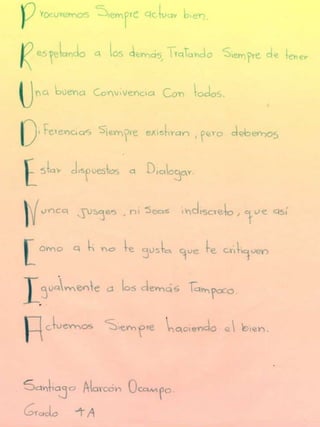 Procuremos Siempre actuar bien.
Respetando a los demás, Tratando Siempre de tener
Una buena Convivencia Con todos.
Diferencias Siempre existiran, pero debemos
Estar dispuestos a Dialogar.
Nunca jusges, ni Seas indiscreto, que así
Como a ti no te gusta que te critiquen
Igualmente a los demás Tampoco.
Actuemos Siempre haciendo el bien.
Santiago Alarcón Ocampo.
Grado 4A